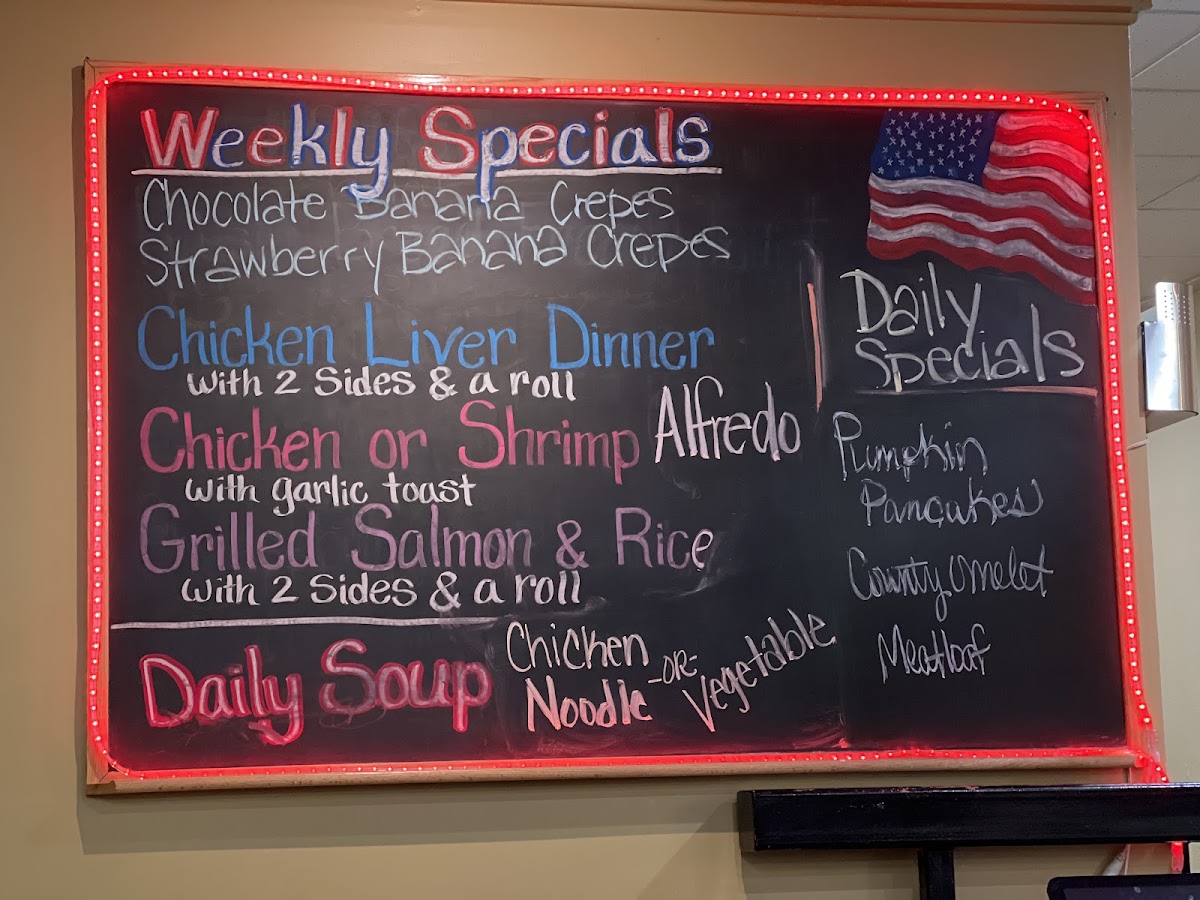 Weekly Specials
Chocolate Banana Crepes
Strawberry Banana Crepes
Chicken Liver Dinner
with 2 Sides & a roll
Chicken or Shrimp Alfredo
with garlic toast
Grilled Salmon & Rice
with 2 Sides & a roll
Daily Soup
Chicken
Noodle
-or-
Vegetable
Daily
Specials
Pumpkin
Pancakes
County Omelet
Meatloaf